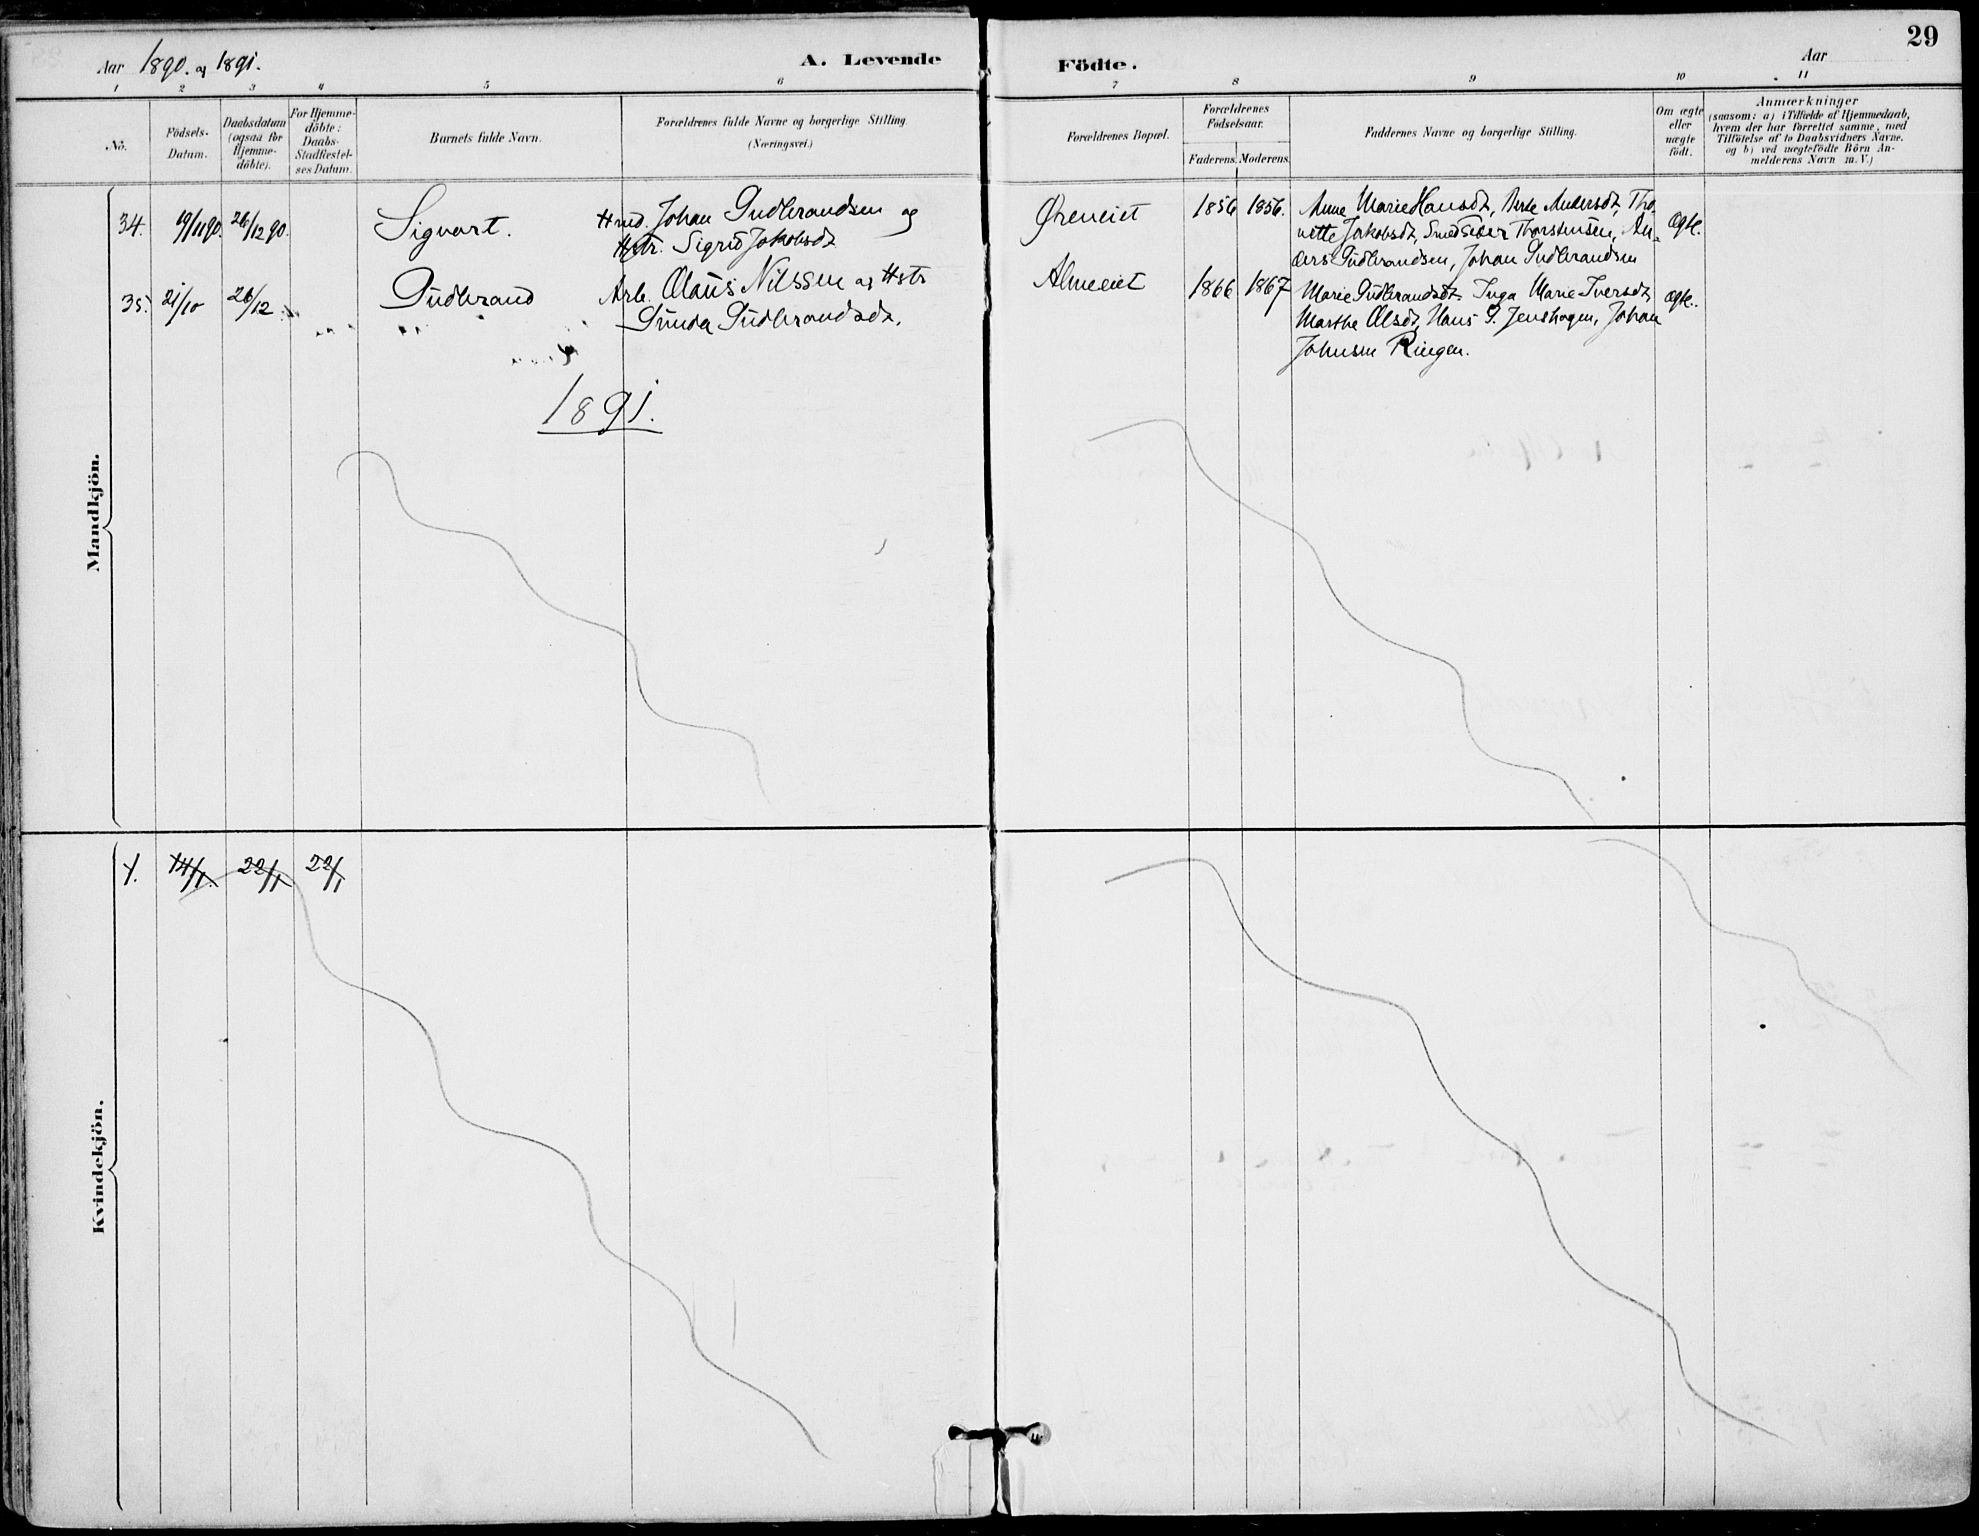 29
Aar 1890. og 1891.
A. Levende Födte.
Aar
1 2 3 4 5 6 7 8 9 10 11
No.
Födsels-
Datum.
Daabsdatum
(ogsaa for
Hjemme-
döbte).
For Hjemme-
döbte:
Daabs-
Stadfæstel-
ses Datum.
Barnets fulde Navn.
Forældrenes fulde Navne og borgerlige Stilling.
(Næringsvei.)
Forældrenes Bopæl.
Forældrenes
Födselsaar.
Faderens. Moderens.
Faddernes Navne og borgerlige Stilling.
Om ægte
eller
uægte
födt.
Anmærkninger
(saasom: a) i Tilfælde af Hjemmedaab,
hvem der har forrettet samme, med
Tilföielse af to Daabsvidners Navne.
og b) ved uægtefödte Börn An-
melderens Navn m. V.)
Mandkjön.
34. 19/11 90. 26/12 90. Sigvart. Hmd. Johan Gudbrandsen og
Hstr. Sigrid Jakobsdt
1856 1856. Anne Marie Hansdt, Berte Andersdt, Tho-
nette Jakobsdt, Smed Thorstensen, An-
ders Gudbrandsen, Johan Gudbrandsen
Ægte.
35. 21/10 26/12 Gudbrand Arb. Olaus Nilssen og Hstr
Gunda Gudbrandsdt.
1866 1867 Marie Gudbrandsdt. Inga Marie Iversdt,
Marthe Olsdt, Hans G. Jenshagen, Johan
Johnsen Ringen.
Ægte.
1891.
Kvindekjön.
1. 14/1. 22/1 22/1